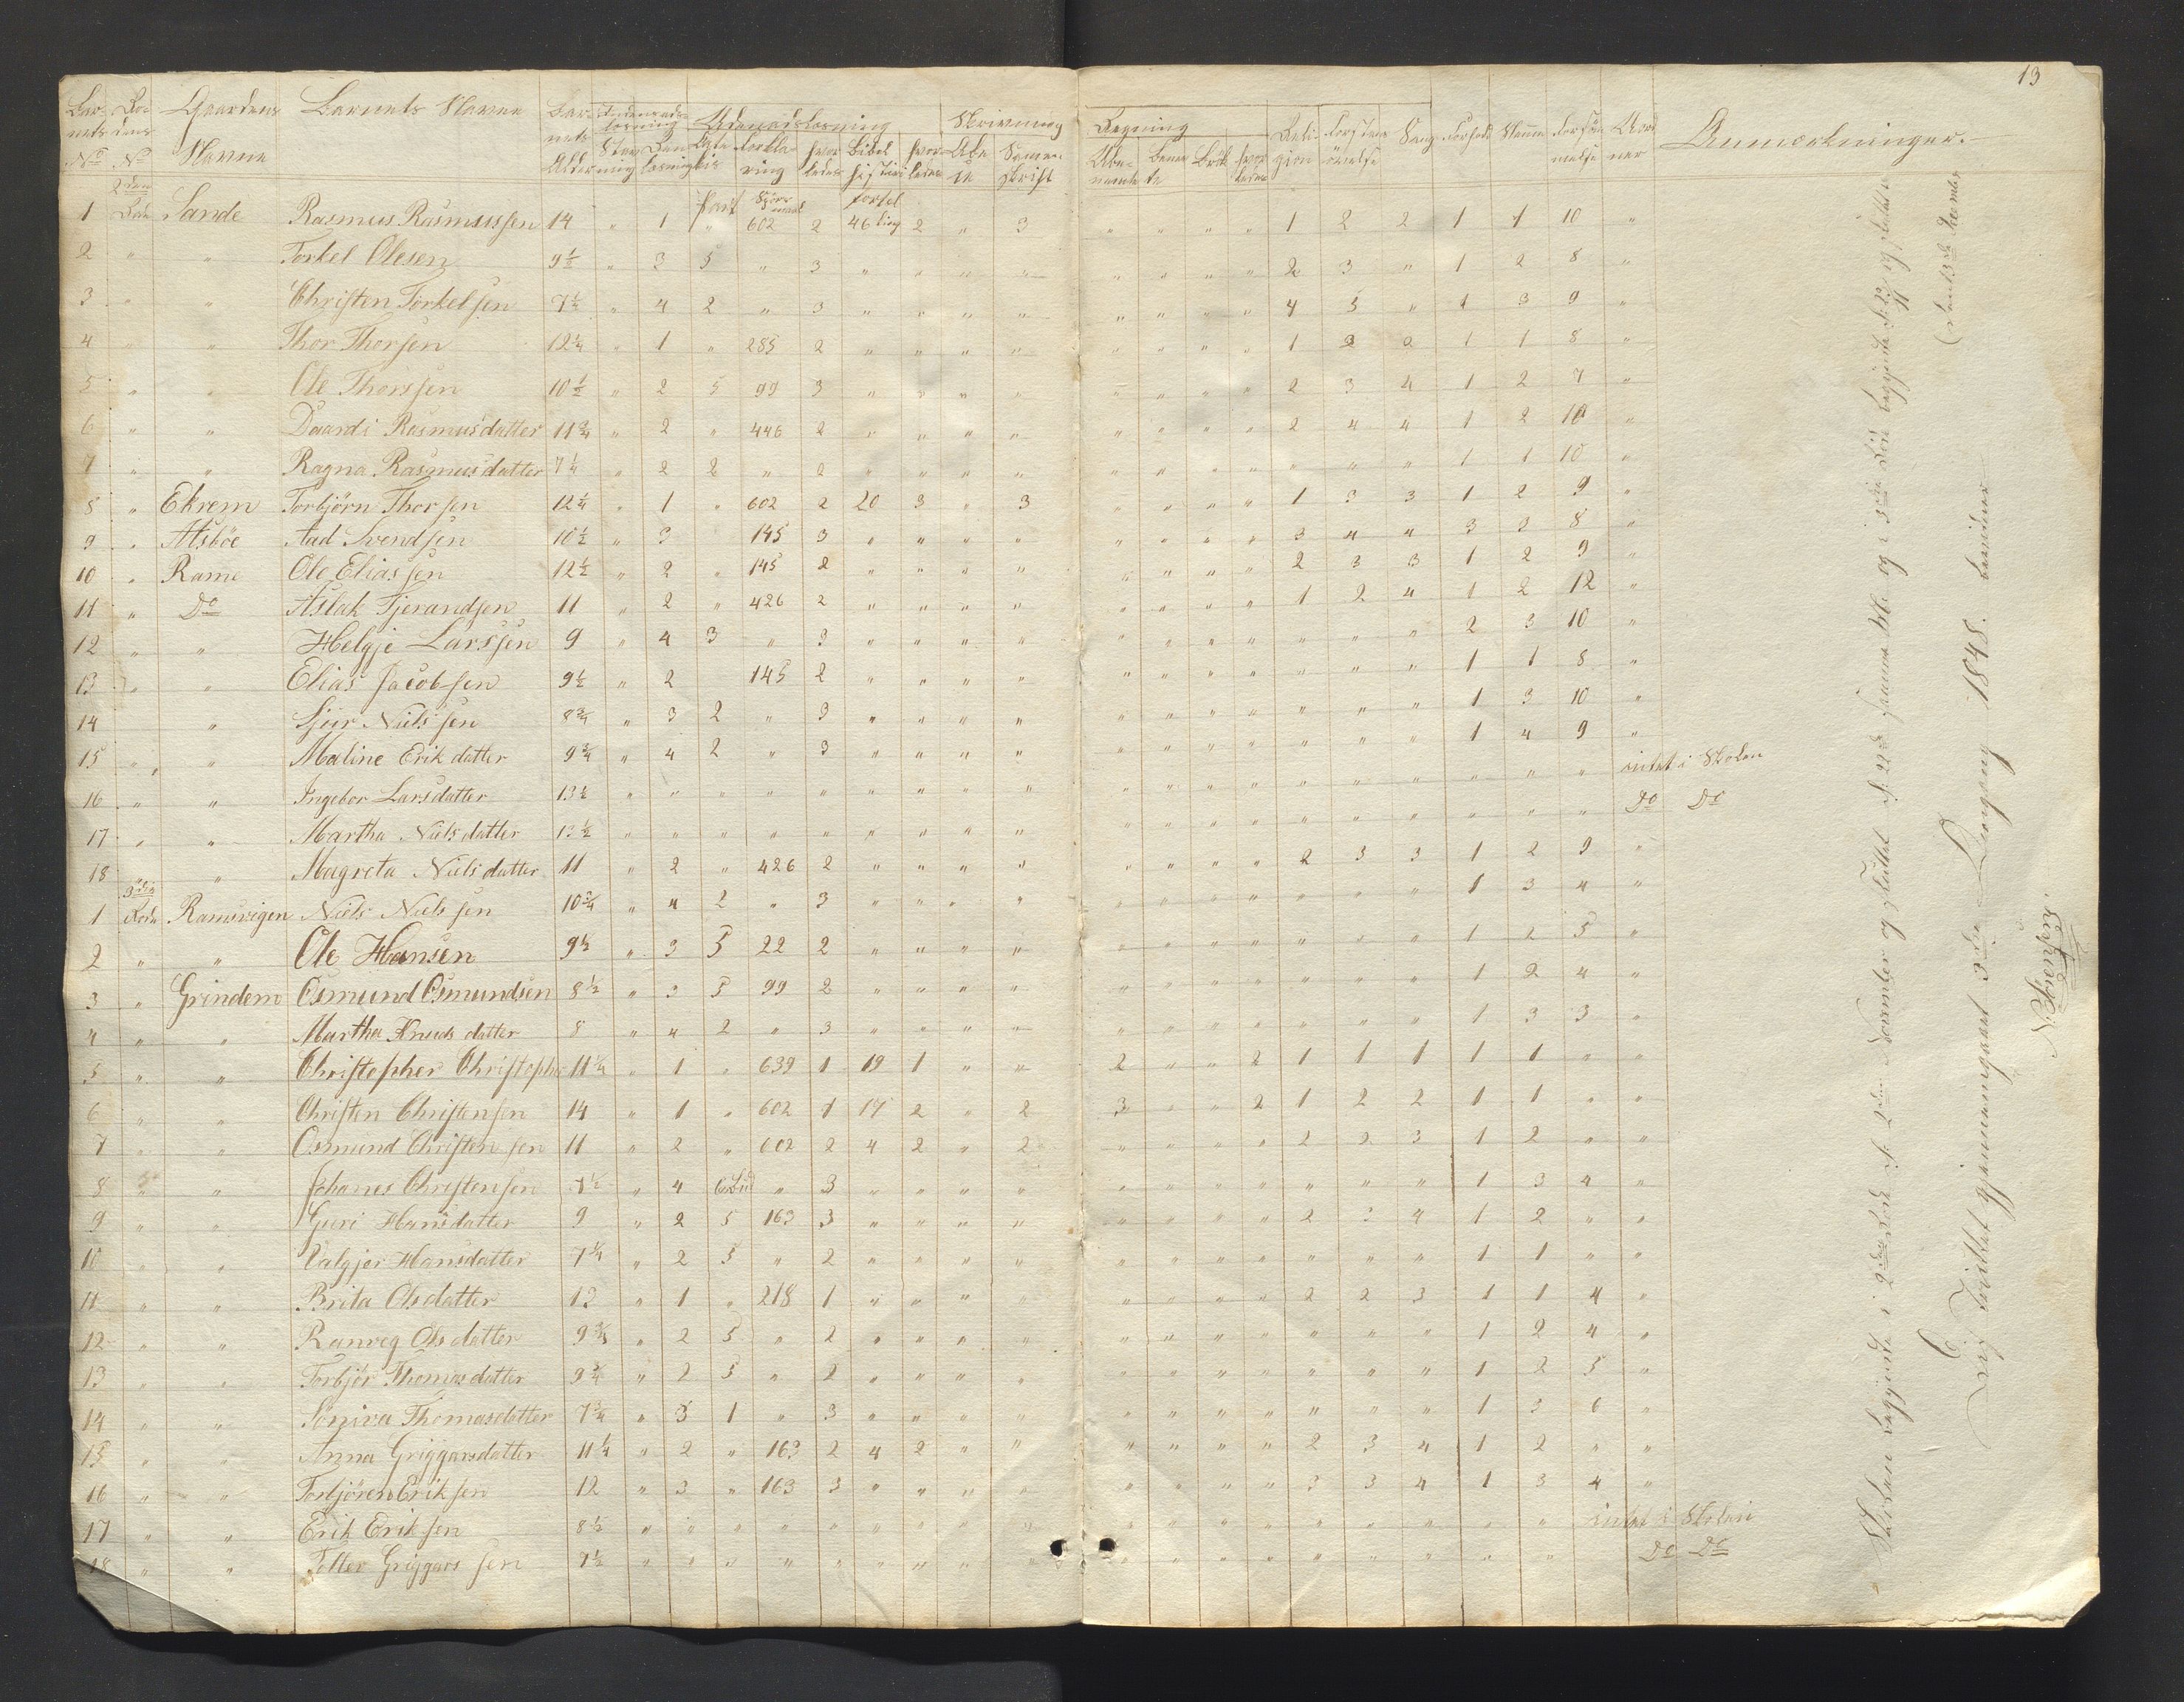 13
Barnets No Rodens No Gaardens Navne Barnets Navne Barnets Alder Indenadslæsning Udenadslæsning Skrivning Regning Religion Forstandsøvelse Sang Forhold Nemme Forsømmelse Anmærkninger.
Stavning Katekis Forklaring hvorledes Bibelhistorie hvorledes Sammenskrift Brök hvorledes
2den Rode
Part Spörsmaal Fortelling
1 Sande Rasmus Rasmussen 14 " 1 " 602 2 46 2 " 3 " " " " 1 2 2 1 1 10 "
2 " " Torkel Olesen 9½ " 3 5 " 3 " " " " " " " " 2 3 " 1 2 8 "
3 " " Christen Torkelsen 7½ " 4 2 " 3 " " " " " " " " 4 5 " 1 3 9 "
4 " " Thor Thorsen 12¼ " 1 " 285 2 " " " " " " " " 1 2 2 1 1 8 "
5 " " Ole Thorssen 10½ " 2 5 99 3 " " " " " " " " 2 3 4 1 2 7 "
6 " " Daardi Rasmusdatter 11¾ " 2 " 446 2 " " " " " " " " 2 4 4 1 2 10 "
7 " " Ragna Rasmusdatter 7¼ " 2 2 " 2 " " " " " " " " " " " 1 1 10 "
8 " Ekrem Torbjörn Thorsen 12¼ " 1 " 602 2 20 3 " 3 " " " " 1 3 3 1 2 9 "
9 " Atsböe Aad Svendsen 10½ " 3 145 3 " " " " " " " " 3 4 4 3 3 8 "
10 " Rame Ole Eliassen 12½ " 2 " 145 2 " " " " " " " " 2 3 3 1 2 9 "
11 " Do Aslak Tjerandsen 11 " 2 " 426 2 " " " " " " " " 1 2 4 1 2 12 "
12 " " Helgje Larssen 9 " 4 3 " 3 " " " " " " " " " " " 2 3 10 "
13 " " Elias Jacobsen 9½ " 2 145 2 " " " " " " " " " " " 1 1 8 "
14 " Sjur Nielssen 8¾ " 3 2 " 3 " " " " " " " " " " " 1 3 10 "
15 " " Maline Erikdatter 9¾ " 4 2 " 3 " " " " " " " " " " " 1 4 9 "
16 " " Ingebor Larsdatter 13½ " " " " " " " " " " " " " " " " " " " intet i Skolen
17 " " Martha Nielsdatter 13½ " " " " " " " " " " " " " " " " " " " Do Do
18 " Magreta Nielsdatter 11 " 2 " 426 2 " " " " " " " " 2 3 3 1 2 9 "
3die Rode
1 Ramsvigen Niels Nielssen 10¾ " 4 2 " 3 " " " " " " " " " " " 1 3 4 "
2 " " Ole Hansen 9½ " 3 5 22 2 " " " " " " " " " " " 1 2 5 "
3 " Grindem Osmund Osmundsen 8½ " 3 5 99 2 " " " " " " " " " " " 1 2 4 "
4 " " Martha Knudsdatter 8 " 4 2 " 3 " " " " " " " " " " " 1 3 3 "
5 " " Christopher Christophe 11¼ " 1 " 639 1 19 1 " " 2 " " 2 1 1 1 1 1 " "
6 " " Christen Christensen 14 " 1 " 602 1 17 2 " 2 3 " " 2 1 2 2 1 1 " "
7 " " Osmund Christensen 11 " 2 " 602 2 4 2 " 2 " " " " 2 2 3 1 2 " "
8 " " Johanes Christensen 7½ " 4 " 3 " " " " " " " " " " " 1 3 4 "
9 " " Guri Hansdatter 9 " 2 5 163 3 " " " " " " " " 2 2 4 1 2 " "
10 " " Valgjer Hansdatter 7¼ " 2 5 " 2 " " " " " " " " " " " 1 1 " "
11 " " Brita Olsdatter 13 " 1 " 218 1 " " " " " " " " 2 2 3 1 1 4 "
12 " " Ranveg Olsdatter 9¾ " 2 5 " 2 " " " " " " " " " " " 1 2 4 "
13 " " Torbjör Thomasdatter 9¾ " 2 5 " 2 " " " " " " " " " " " 1 2 5 "
14 " " Söniva Thomasdatter 7¾ " 3 1 " 3 " " " " " " " " " " " 1 3 6 "
15 " " Anna Griggarsdatter 11¼ " 2 " 163 2 4 2 " " " " " " 2 3 4 1 2 " "
16 " " Torbjören Eriksen 12 " 3 " 163 3 " " " " " " " " 3 3 4 1 3 4 "
17 " " Erik Eriksen 8½ " " " " " " " " " " " " " " " " " " intet i Skolen
18 " " Toller Griggarssen 7½ " " " " " " " " " " " " " " " " " " Do Do
Skolen begyndte i 2den Rode d. 2den November og sluttet d. 22de samme M. og i 3die Rode begyndte d. 23 og sluttet
Er Tilsted gjennemgaaet 3die Omgang 1848. bevidner
N. Svensen